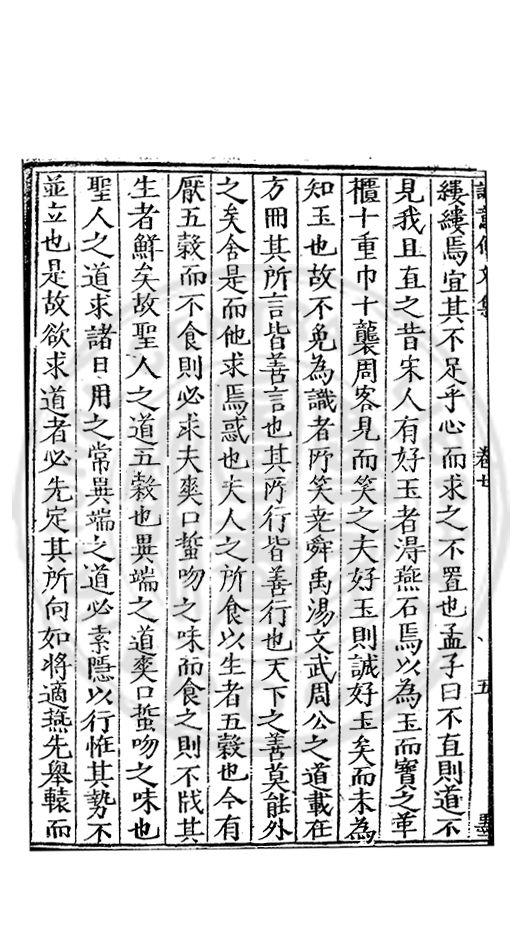 誠意伯文集 卷七 五
縷縷焉宜其不足乎心而求之不置也孟子曰不直則道不
見我且直之昔宋人有好玉者淂燕石焉以為玉而寳之革
櫃十重巾十襲周客見而笑之夫好玉則誠好玉矣而未為
知玉也故不免為識者所笑尭舜禹湯文武周公之道載在
方冊其所言皆善言也其所行皆善行也天下之善莫能外
之矣舍是而他求焉惑也夫人之所食以生者五穀也今有
厭五穀而不食則必求夫爽口蜇吻之味而食之則不戕其
生者鮮矣故聖人之道五穀也異端之道爽口蜇吻之味也
聖人之道求諸日用之常異端之道必索隱以行恠其勢不
並立也是故欲求道者必先定其所向如將適燕先舉轅而